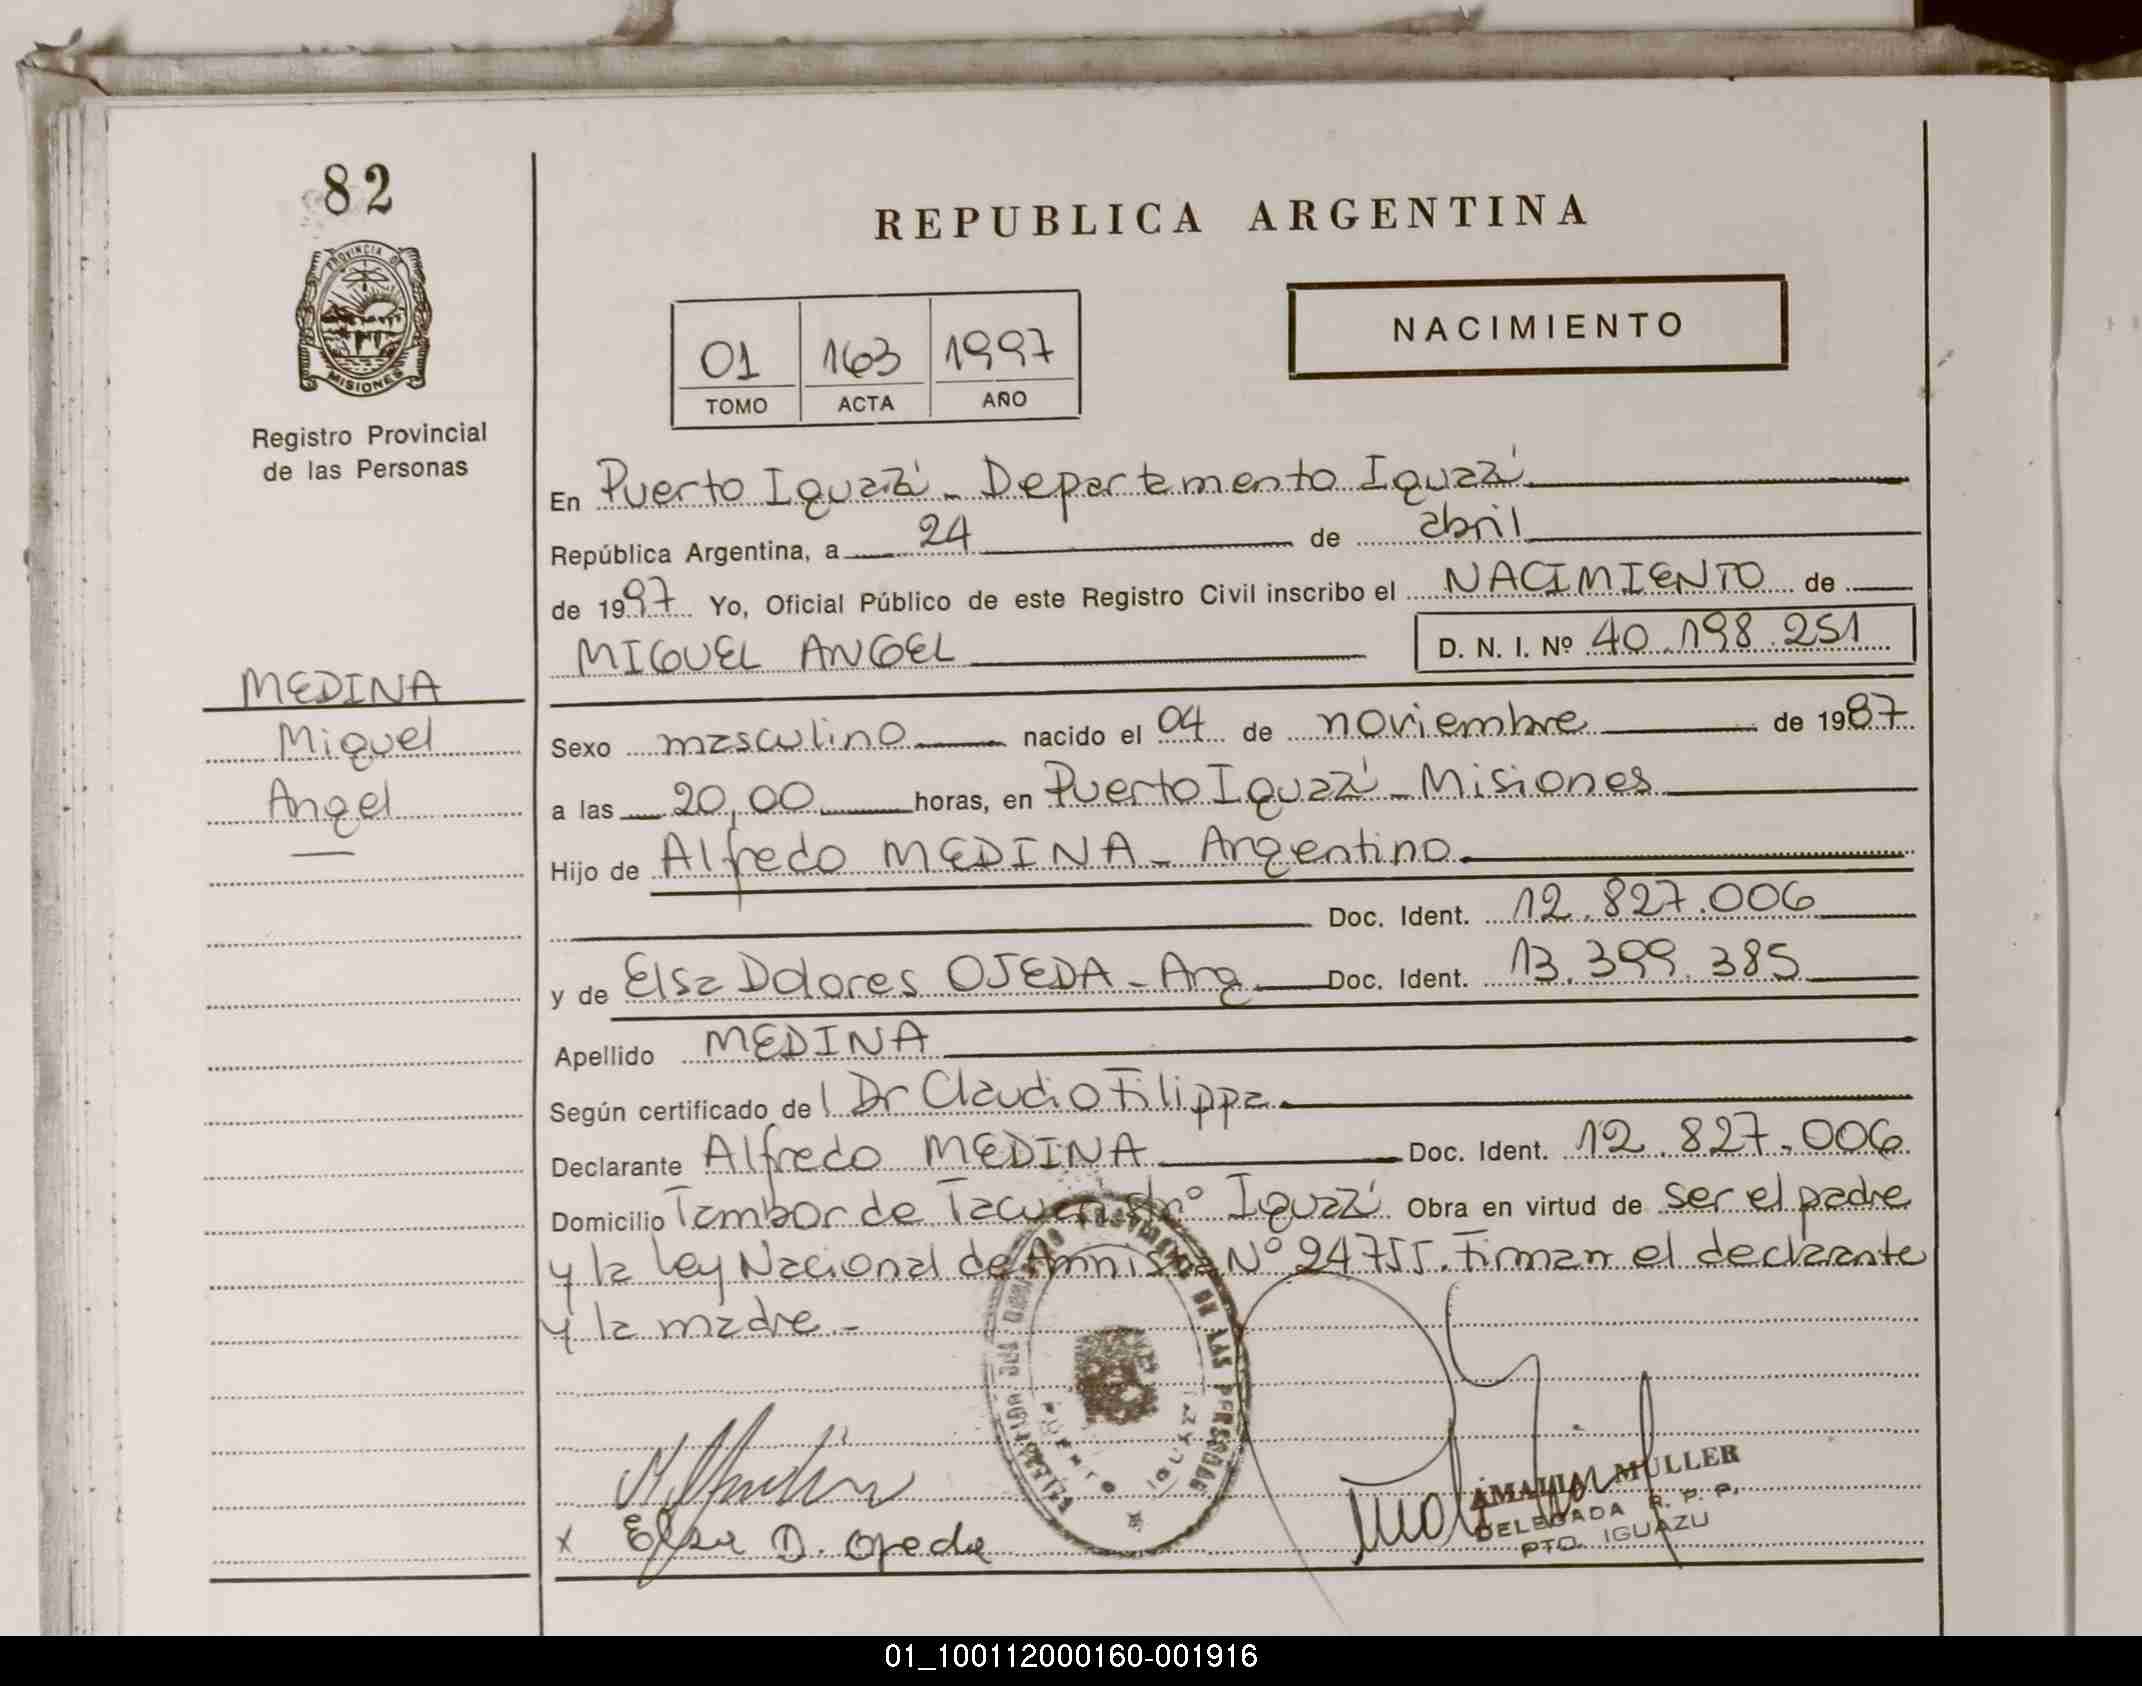 82
PROVINCIA DE
MISIONES
Registro Provincial
de las Personas
REPUBLICA ARGENTINA
01 163 1997
TOMO ACTA AÑO
NACIMIENTO
En Puerto Iguazú - Departamento Iguazú
República Argentina, a 24 de abril
de 1997 Yo, Oficial Público de este Registro Civil inscribo el NACIMIENTO de
MIGUEL ANGEL D. N. I. Nº 40.198.251
MEDINA
Miguel
Angel
Sexo masculino nacido el 04 de noviembre de 1987
a las 20,00 horas, en Puerto Iguazú - Misiones
Hijo de Alfredo MEDINA - Argentino
Doc. Ident. 12.827.006
y de Elsa Dolores OJEDA - Arg Doc. Ident. 13.399.385
Apellido MEDINA
Según certificado del Dr Claudio Filippa
Declarante Alfredo MEDINA Doc. Ident. 12.827.006
Domicilio Tambor de Tacuarí s/nº Iguazú Obra en virtud de ser el padre
y la Ley Nacional de Amnistía Nº 24755. Firman el declarante
y la madre.-
PUERTO IGUAZU
x Elsa D. Ojeda
AMALIA MULLER
DELEGADA R. P. P.
PTO. IGUAZU
01_100112000160-001916